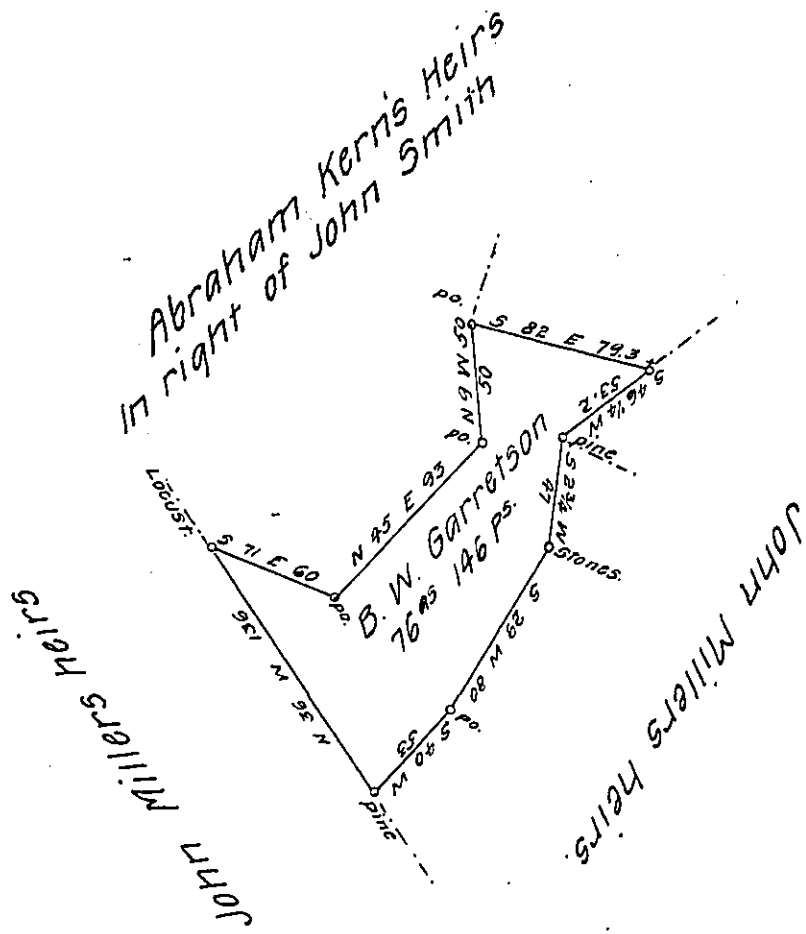 Abraham Kern's Heirs
In right of John Smith
po.
S 82 E 79.3
N 6 W 50
50
po.
S 46 1/4 W
53.2
pine.
S 2 3/4 W
47
stones.
Locust.
S 71 E 60
po.
N 45 E 93
B. W. Garretson
76 as 146 ps.
S 29 W 80
po.
S 40 W
53
pine
N 36 W 136
John Millers heirs
John Millers heirs.